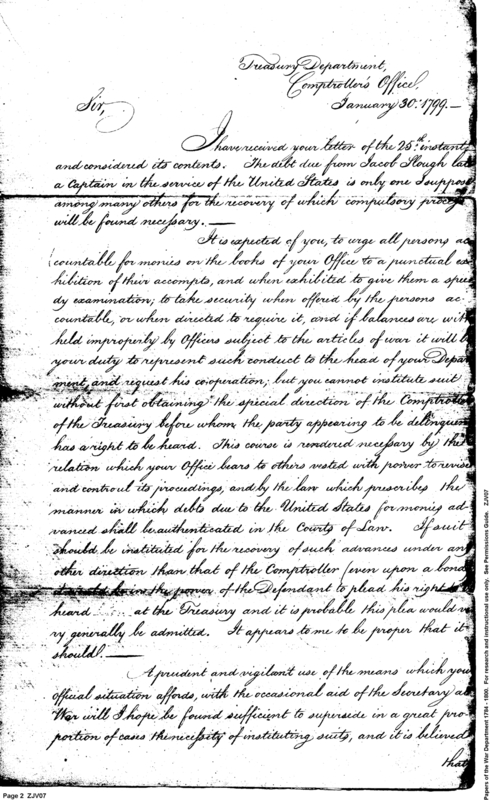 Treasury Department,
Comptroller's Office,
January 30th. 1799.—
Sir,
I have received your letter of the 25th. instant,
and considered its contents. The debt due from Jacob Slough late
a Captain in the service of the United States is only one I suppose
among many others for the recovery of which compulsory process
will be found necessary.—
It is expected of you, to urge all persons ac
countable for monies on the books of your Office to a punctual ex
hibition of their accompts, and when exhibited to give them a spee
dy examination; to take security when offered by the persons ac.
countable, or when directed to require it, and if balances are with
held improperly by Officers subject to the articles of war it will be
your duty to represent such conduct to the head of your Depart
ment, and request his cooperation; but you cannot institute suit
without first obtaining the special direction of the Comptroller
of the Treasury before whom, the party appearing to be delinquent
has a right to be heard. This course is rendered necessary by the
relation which your Office bears to others vested with power to revise
and controul its proceedings, and by the law which prescribes the
manner in which debts due to the United States for monies ad
vanced shall be authenticated in the Courts of Law. If suit
should be instituted for the recovery of such advances under any
other direction than that of the Comptroller (even upon a bond
it would be in the power of the Defendant to plead his right to be
heard at the Treasury and it is probable this plea would ve
ry generally be admitted. It appears to me to be proper that it
should.—
A prudent and vigilant use of the means which your
official situation affords, with the occasional aid of the Secretary at
War will I hope be found sufficient to supersede in a great pro-
portion of cases the necessity of instituting suits, and it is believed
that
Page 2 ZJV07
Papers of the War Department 1784 - 1800. For research and instructional use only. See Permissions Guide. ZJV07